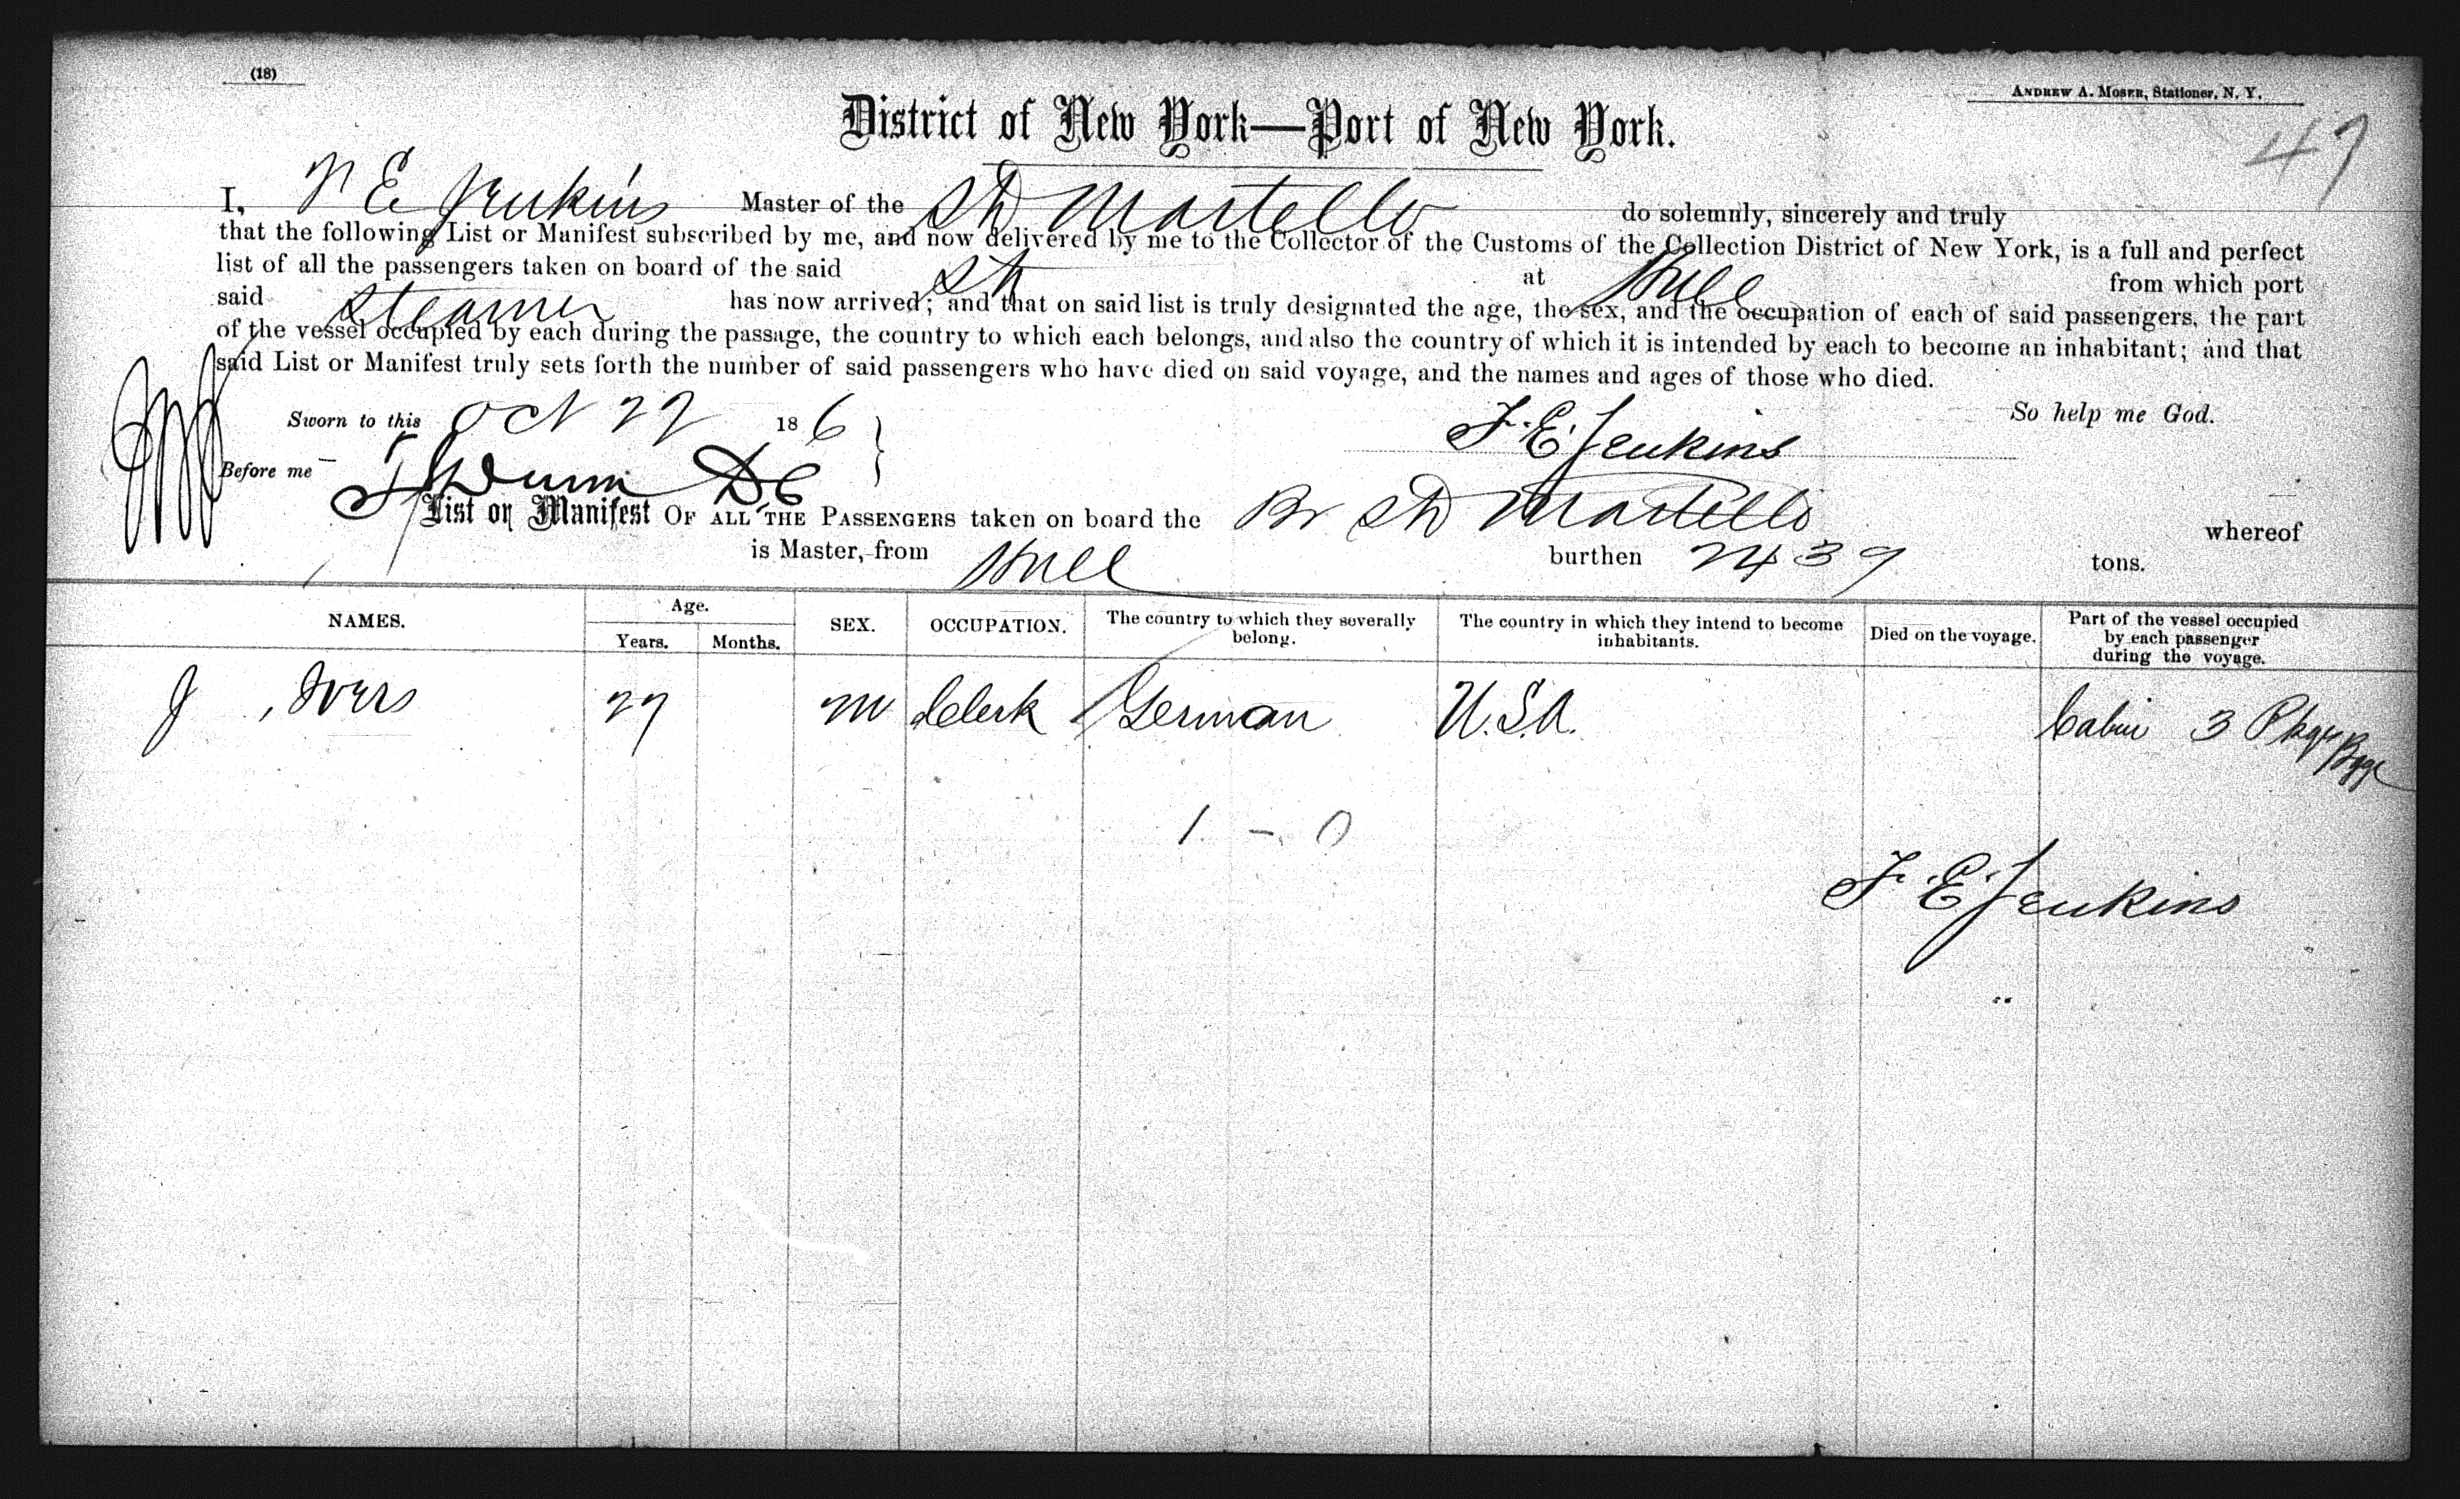 (18)
ANDREW A. MOSER, Stationer, N. Y.
District of New York—Port of New York.
47
I, F E Jenkins Master of the Str Martello do solemnly, sincerely and truly
that the following List or Manifest subscribed by me, and now delivered by me to the Collector of the Customs of the Collection District of New York, is a full and perfect
list of all the passengers taken on board of the said Str at Hull from which port
said Steamer has now arrived; and that on said list is truly designated the age, the sex, and the occupation of each of said passengers, the part
of the vessel occupied by each during the passage, the country to which each belongs, and also the country of which it is intended by each to become an inhabitant; and that
said List or Manifest truly sets forth the number of said passengers who have died on said voyage, and the names and ages of those who died.
Sworn to this Oct 22 186 F. E. Jenkins So help me God.
Before me Dunn DC
List or Manifest OF ALL THE PASSENGERS taken on board the Br Str Martello whereof
is Master, from Hull burthen 2439 tons.
NAMES. Age. Years. Months. SEX. OCCUPATION. The country to which they severally belong. The country in which they intend to become inhabitants. Died on the voyage. Part of the vessel occupied by each passenger during the voyage.
J Ivers 27 M Clerk German U.S.A. Cabin 3 Pkgs Bgge
1 - 0
F. E. Jenkins